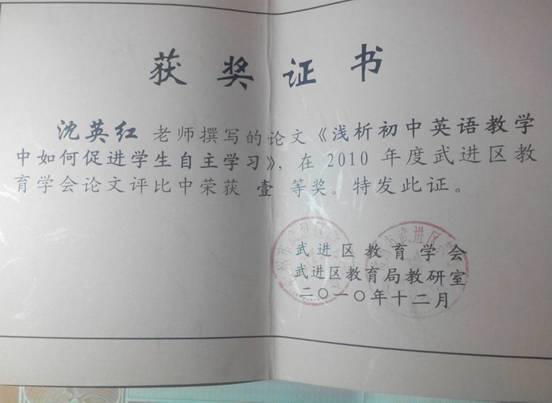 获奖证书
沈英红 老师撰写的论文《浅析初中英语教学
中如何促进学生自主学习》，在 2010 年度武进区教
育学会论文评比中荣获 壹 等奖。特发此证。
武进区教育学会
武进区教育局教研室
二〇一〇年十二月